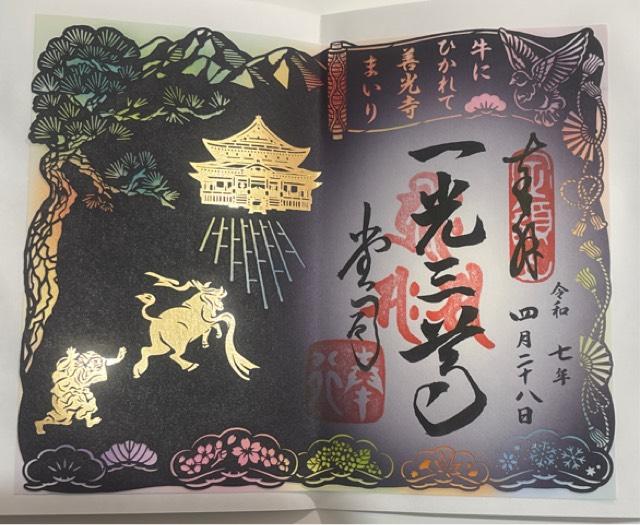 牛に
ひかれて
善光寺
まいり
奉拝
令和七年
四月二十八日
一光三尊
堂司